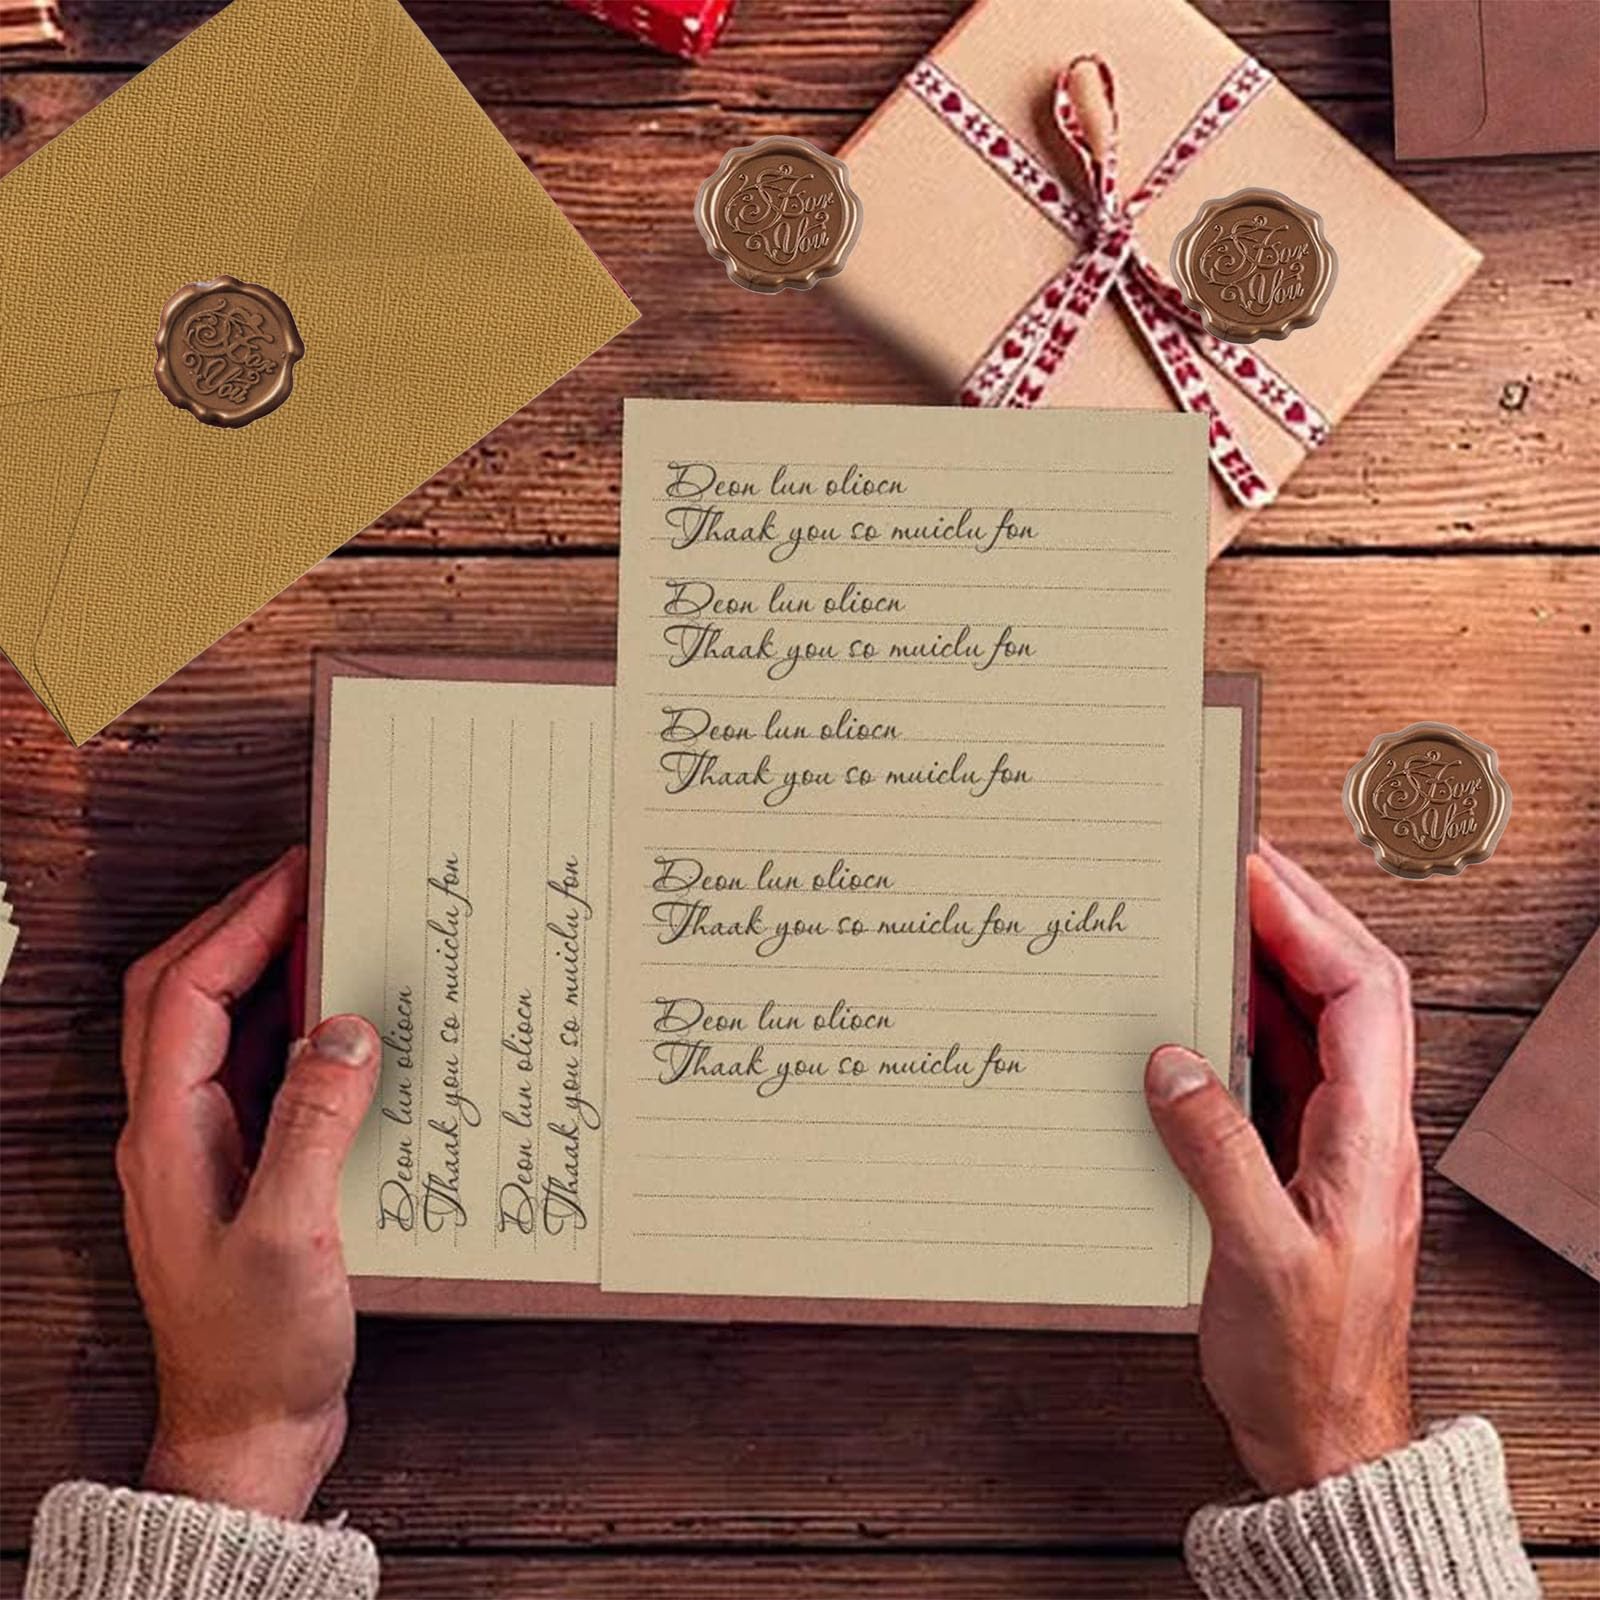 For
You
For
You
For
You
Deon lun oliocn
Thaak you so muiclu fon
Deon lun oliocn
Thaak you so muiclu fon
Deon lun oliocn
Thaak you so muiclu fon
Deon lun oliocn
Thaak you so muiclu fon yidnh
Deon lun oliocn
Thaak you so muiclu fon
For
You
Deon lun oliocn
Thaak you so muiclu fon
Deon lun oliocn
Thaak you so muiclu fon